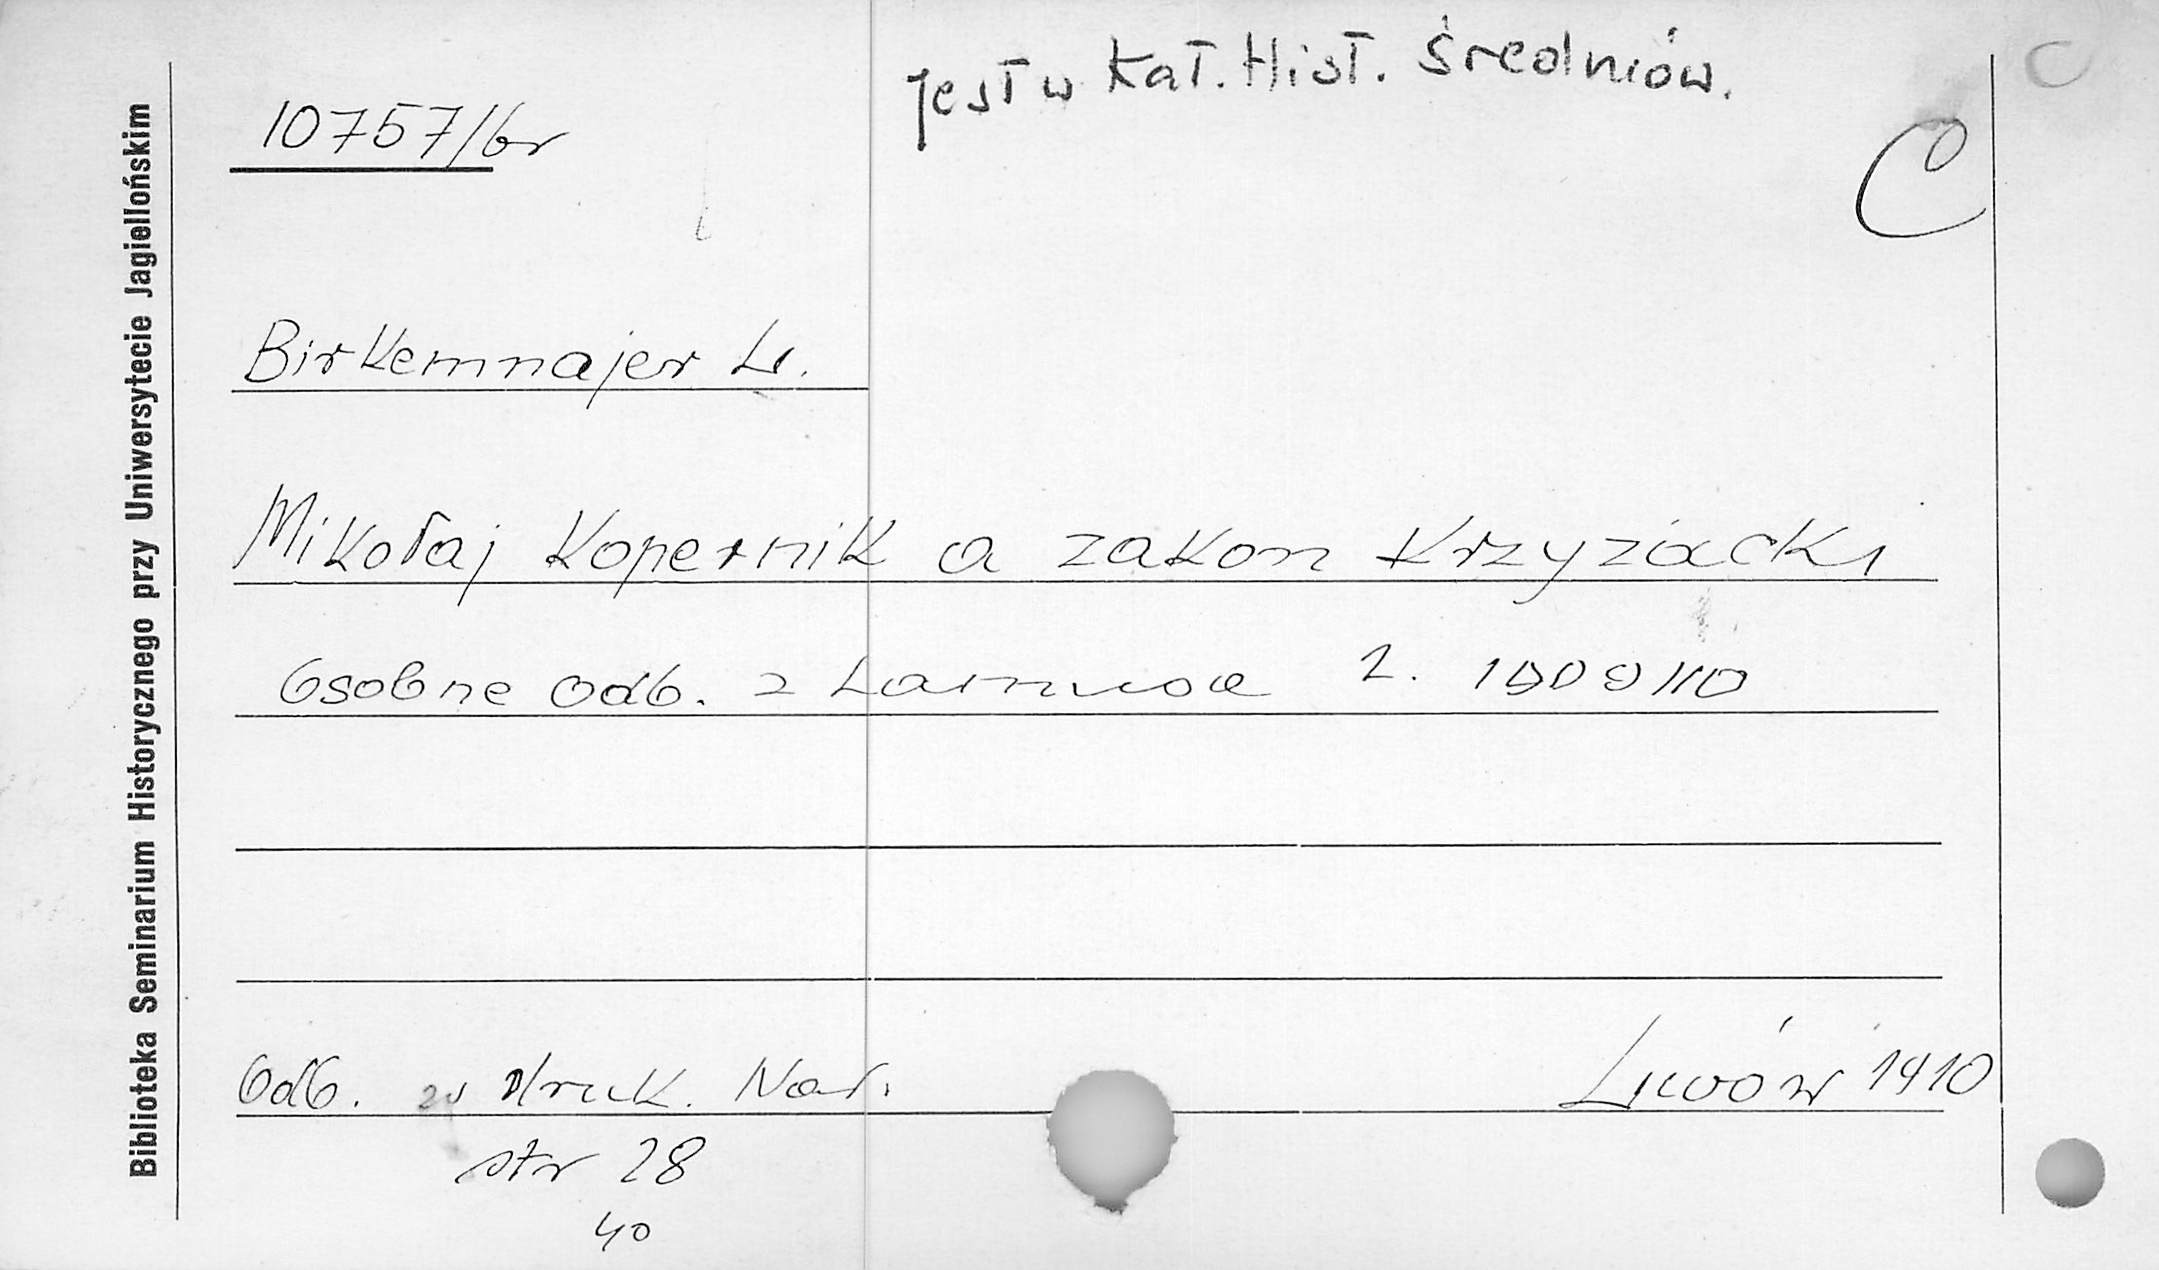 Biblioteka Seminarium Historycznego przy Uniwersytecie Jagiellońskim
jest w Kat. Hist. Średniów.
C
10757/br
C
Birkemnajer L.
Mikołaj Kopernik a zakon Krzyżacki
Osobne odb. z Lamusa 2. 1909/10
Odb. w druk. Nar. Lwów 1910
str 28
40